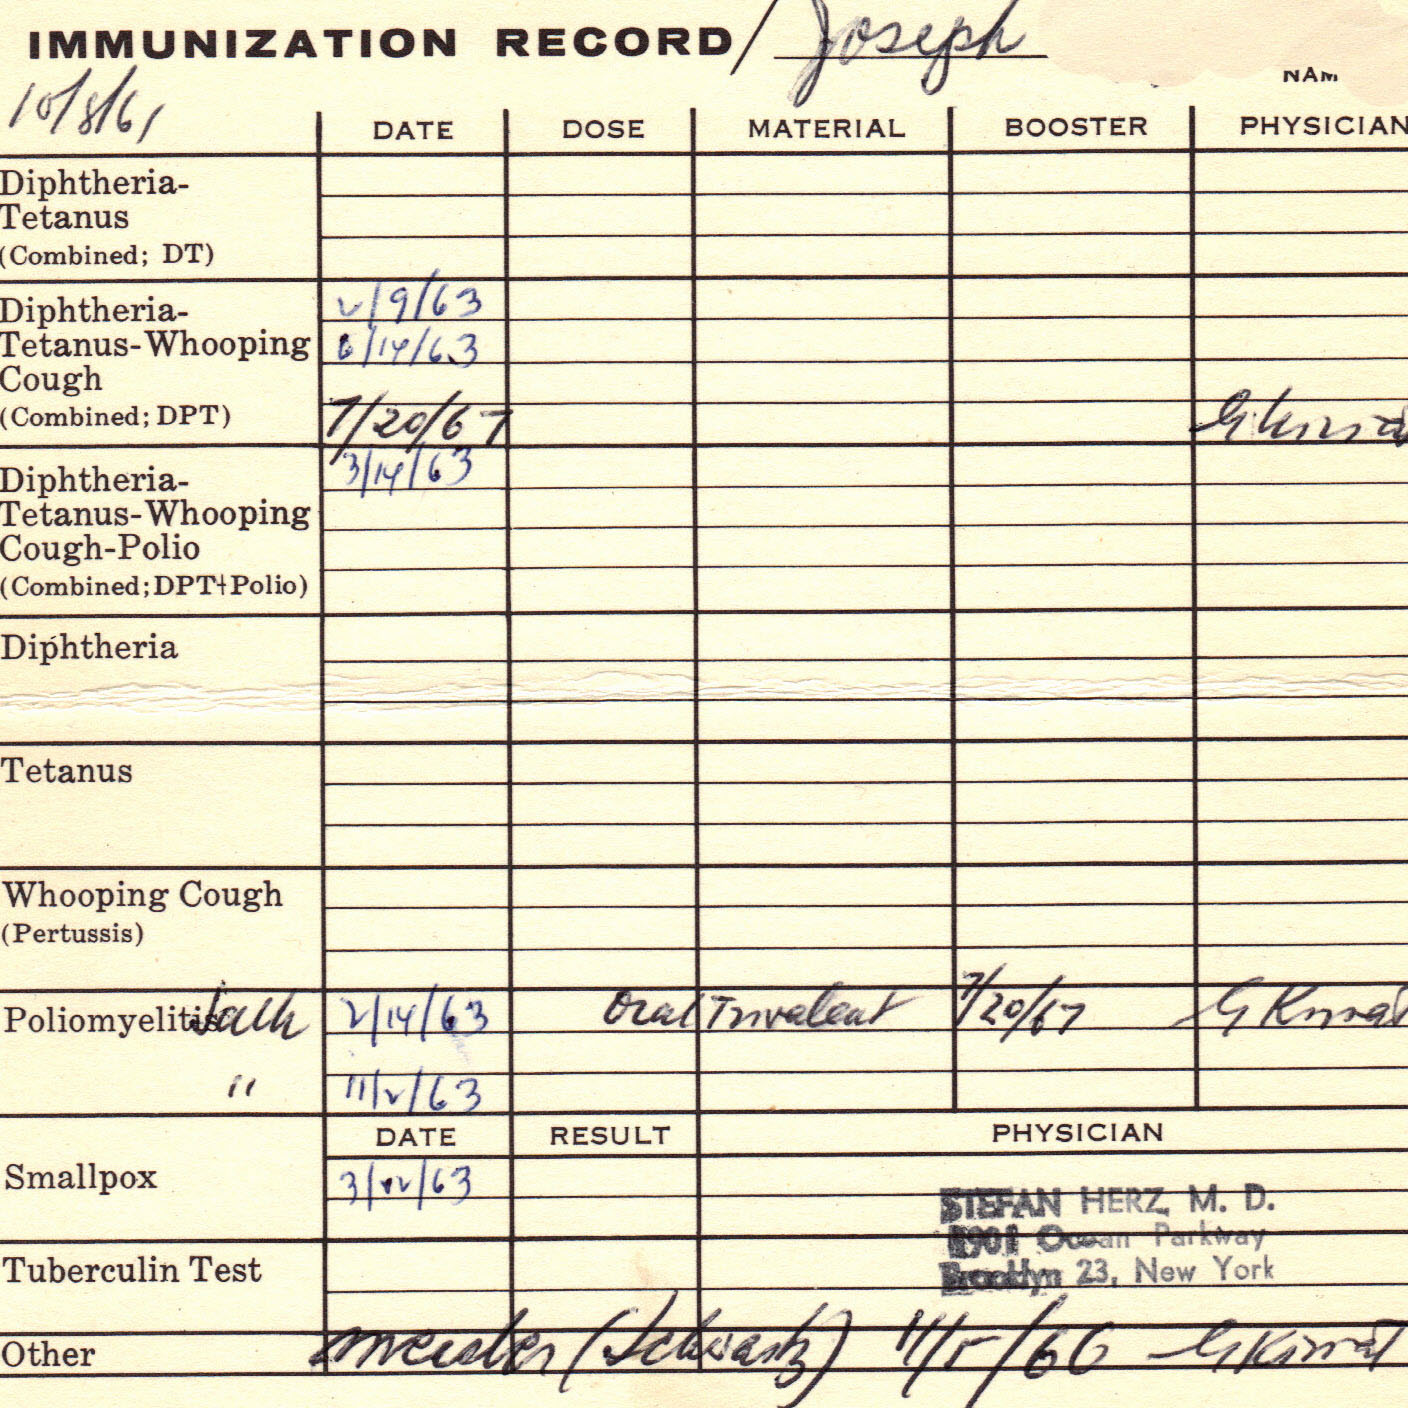 IMMUNIZATION RECORD / Joseph
NAM
10/8/61
DATE DOSE MATERIAL BOOSTER PHYSICIAN
Diphtheria-
Tetanus
(Combined; DT)
Diphtheria- 2/9/63
Tetanus-Whooping 6/14/63
Cough
(Combined; DPT) 7/20/67
Diphtheria- 3/14/63
Tetanus-Whooping
Cough-Polio
(Combined; DPT+Polio)
Diphtheria
Tetanus
Whooping Cough
(Pertussis)
Poliomyelitis Salk 2/14/63 Oral Trivalent 7/20/67
" 11/2/63
DATE RESULT PHYSICIAN
Smallpox 3/12/63
STEFAN HERZ, M. D.
Ocean Parkway
Brooklyn 23, New York
Tuberculin Test
Other (Schwartz) 11/5/66